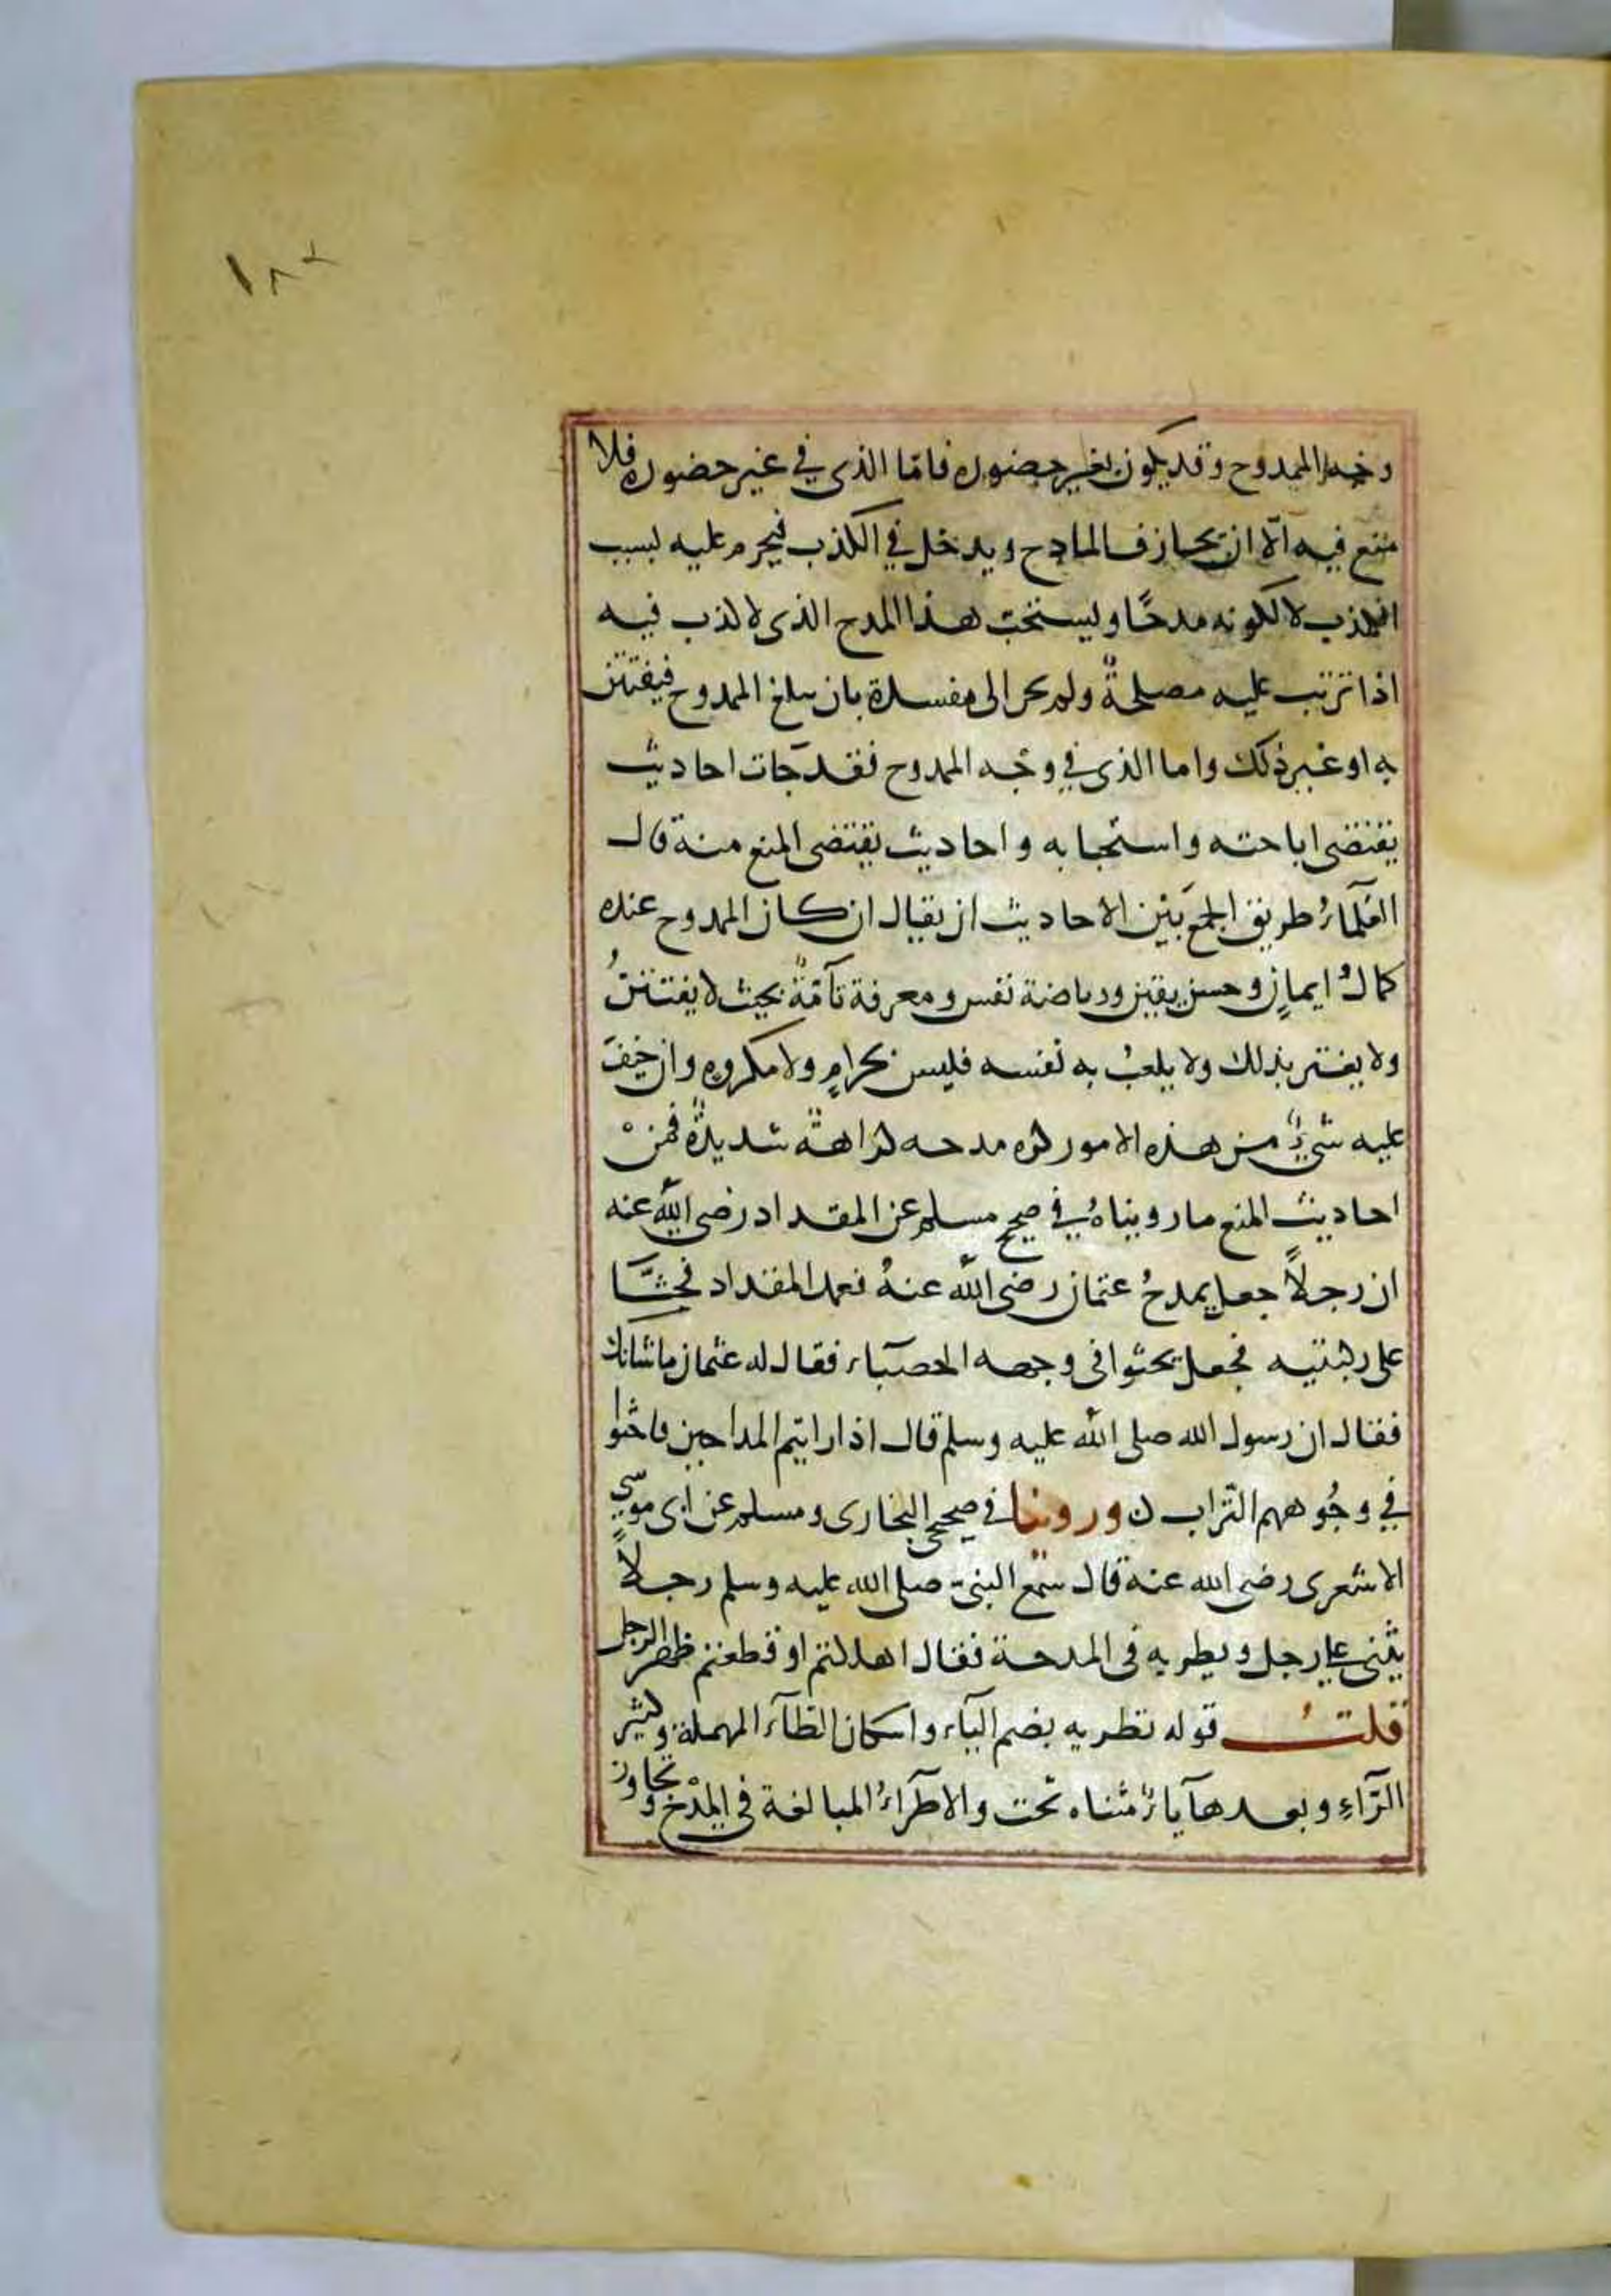 ١٨٢
وجه الممدوح وقد يكون بغير حضوره فامّا الذي في غير حضوره فلا
منع فيه الّا ان يجازف المادح ويدخل في الكذب فيحرم عليه بسبب
الكذب لا لكونه مدحًا ويستحبّ هذا المدح الذى لا كذب فيه
اذا ترتب عليه مصلحةٌ ولم يجر الى مفسدة بان يبلغ الممدوح فيفتتن
به او غير ذلك واما الذى في وجْه الممدوح فقد جآت احاديث
يقتضى اباحته واستحبابه واحاديث يقتضى المنع منه قال
العُلمآءُ طريق الجمع بَيْن الاحاديث ان يقال ان كان الممدوح عنده
كمالُ ايمانٍ وحسن يقين ورياضة نفس ومعرفة تآمّةٌ بحيث لا يفتتنُ
ولا يغتر بذلك ولا يلعبُ به نفسه فليس بحرامٍ ولا مكروهٍ وان خِيْفَ
عليه شىءٌ من هذه الامور كره مدحه كراهةً شديدةً فمنْ
احاديث المنع ما رويناهُ في صحيح مسلم عن المقداد رضى اللّه عنه
ان رجلاً جعل يمدحُ عثمان رضى اللّه عنهُ فعمد المقداد فجثَا
على ركبتيه فجعل يحثوا فى وجهه الحصبآء فقال له عثمان ما شانك
فقال ان رسول الله صلى اللّه عليه وسلم قال اذا رايتم المداحين فاحثوا
في وجُوههم التّراب ن وروينا في صحيحى البخارى ومسلم عن ابى موسي
الاشعرى رضى الله عنه قال سمع النبىّ صلى الله عليه وسلم رجلاً
يثنى على رجل ويطريه فى المدحة فقال اهلكتم او قطعتم ظهر الرجل
قلتُ قوله يطريه بضم اليآء واسكان الطآء المهملة وكسر
الرّآءِ وبعدها يآءٌ مثناه تحت والاطرآءُ المبالغة فى المدْح وتجاوز